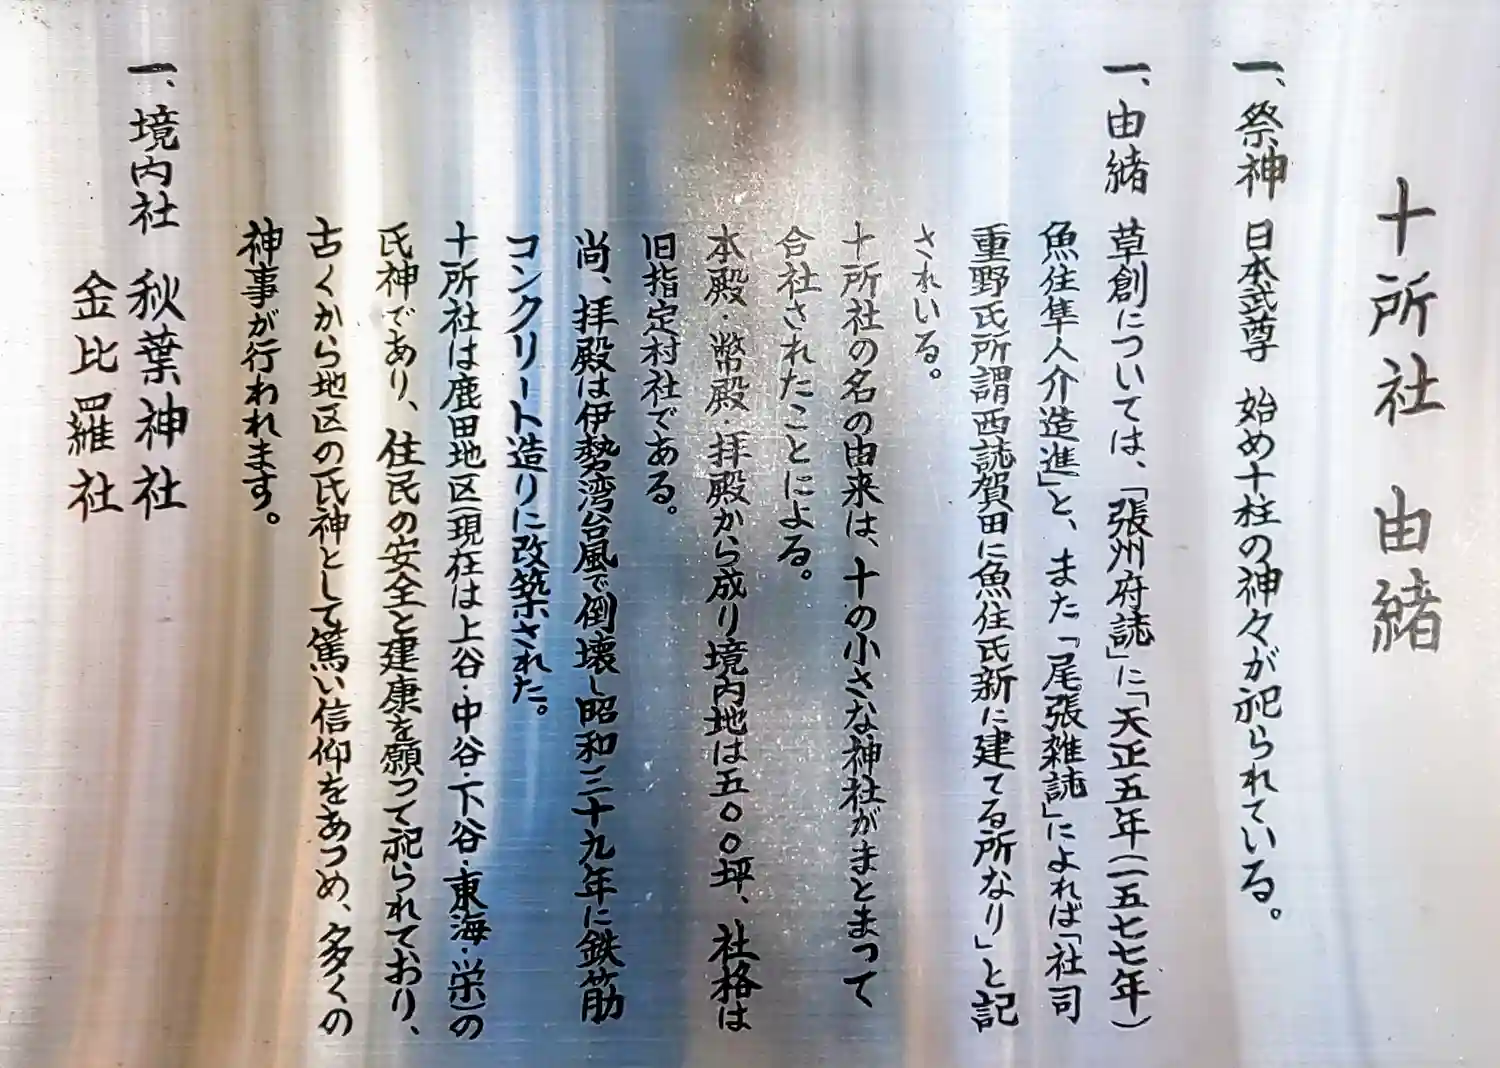 十所社 由緒
一、祭神 日本武尊 始め十柱の神々が祀られている。
一、由緒 草創については、「張州府誌」に「天正五年(一五七七年)
魚住隼人介造進」と、また「尾張雑誌」によれば「社司
重野氏所謂西誌賀田に魚住氏新に建てる所なり」と記
されいる。
十所社の名の由来は、十の小さな神社がまとまって
合社されたことによる。
本殿・幣殿・拝殿から成り境内地は五〇〇坪、社格は
旧指定村社である。
尚、拝殿は伊勢湾台風で倒壊し昭和三十九年に鉄筋
コンクリート造りに改築された。
十所社は鹿田地区(現在は上谷・中谷・下谷・東海・栄)の
氏神であり、住民の安全と建康を願って祀られており、
古くから地区の氏神として篤い信仰をあつめ、多くの
神事が行われます。
一、境内社 秋葉神社
金比羅社